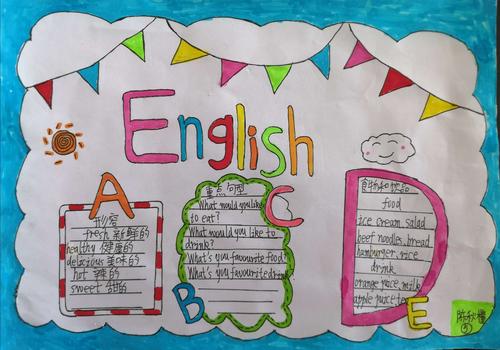 English
A
形容
fresh 新鲜的
healthy 健康的
delicious 美味的
hot 辣的
sweet 甜的
B
C
重点句型
What would you like
to eat?
What would you like to
drink?
What's you favourite food?
What's you favourite drink
D
食物和饮品
food
ice cream salad
beef noodles, bread
hamburger, rice
drink
orange juice, milk
apple juice, tea
E